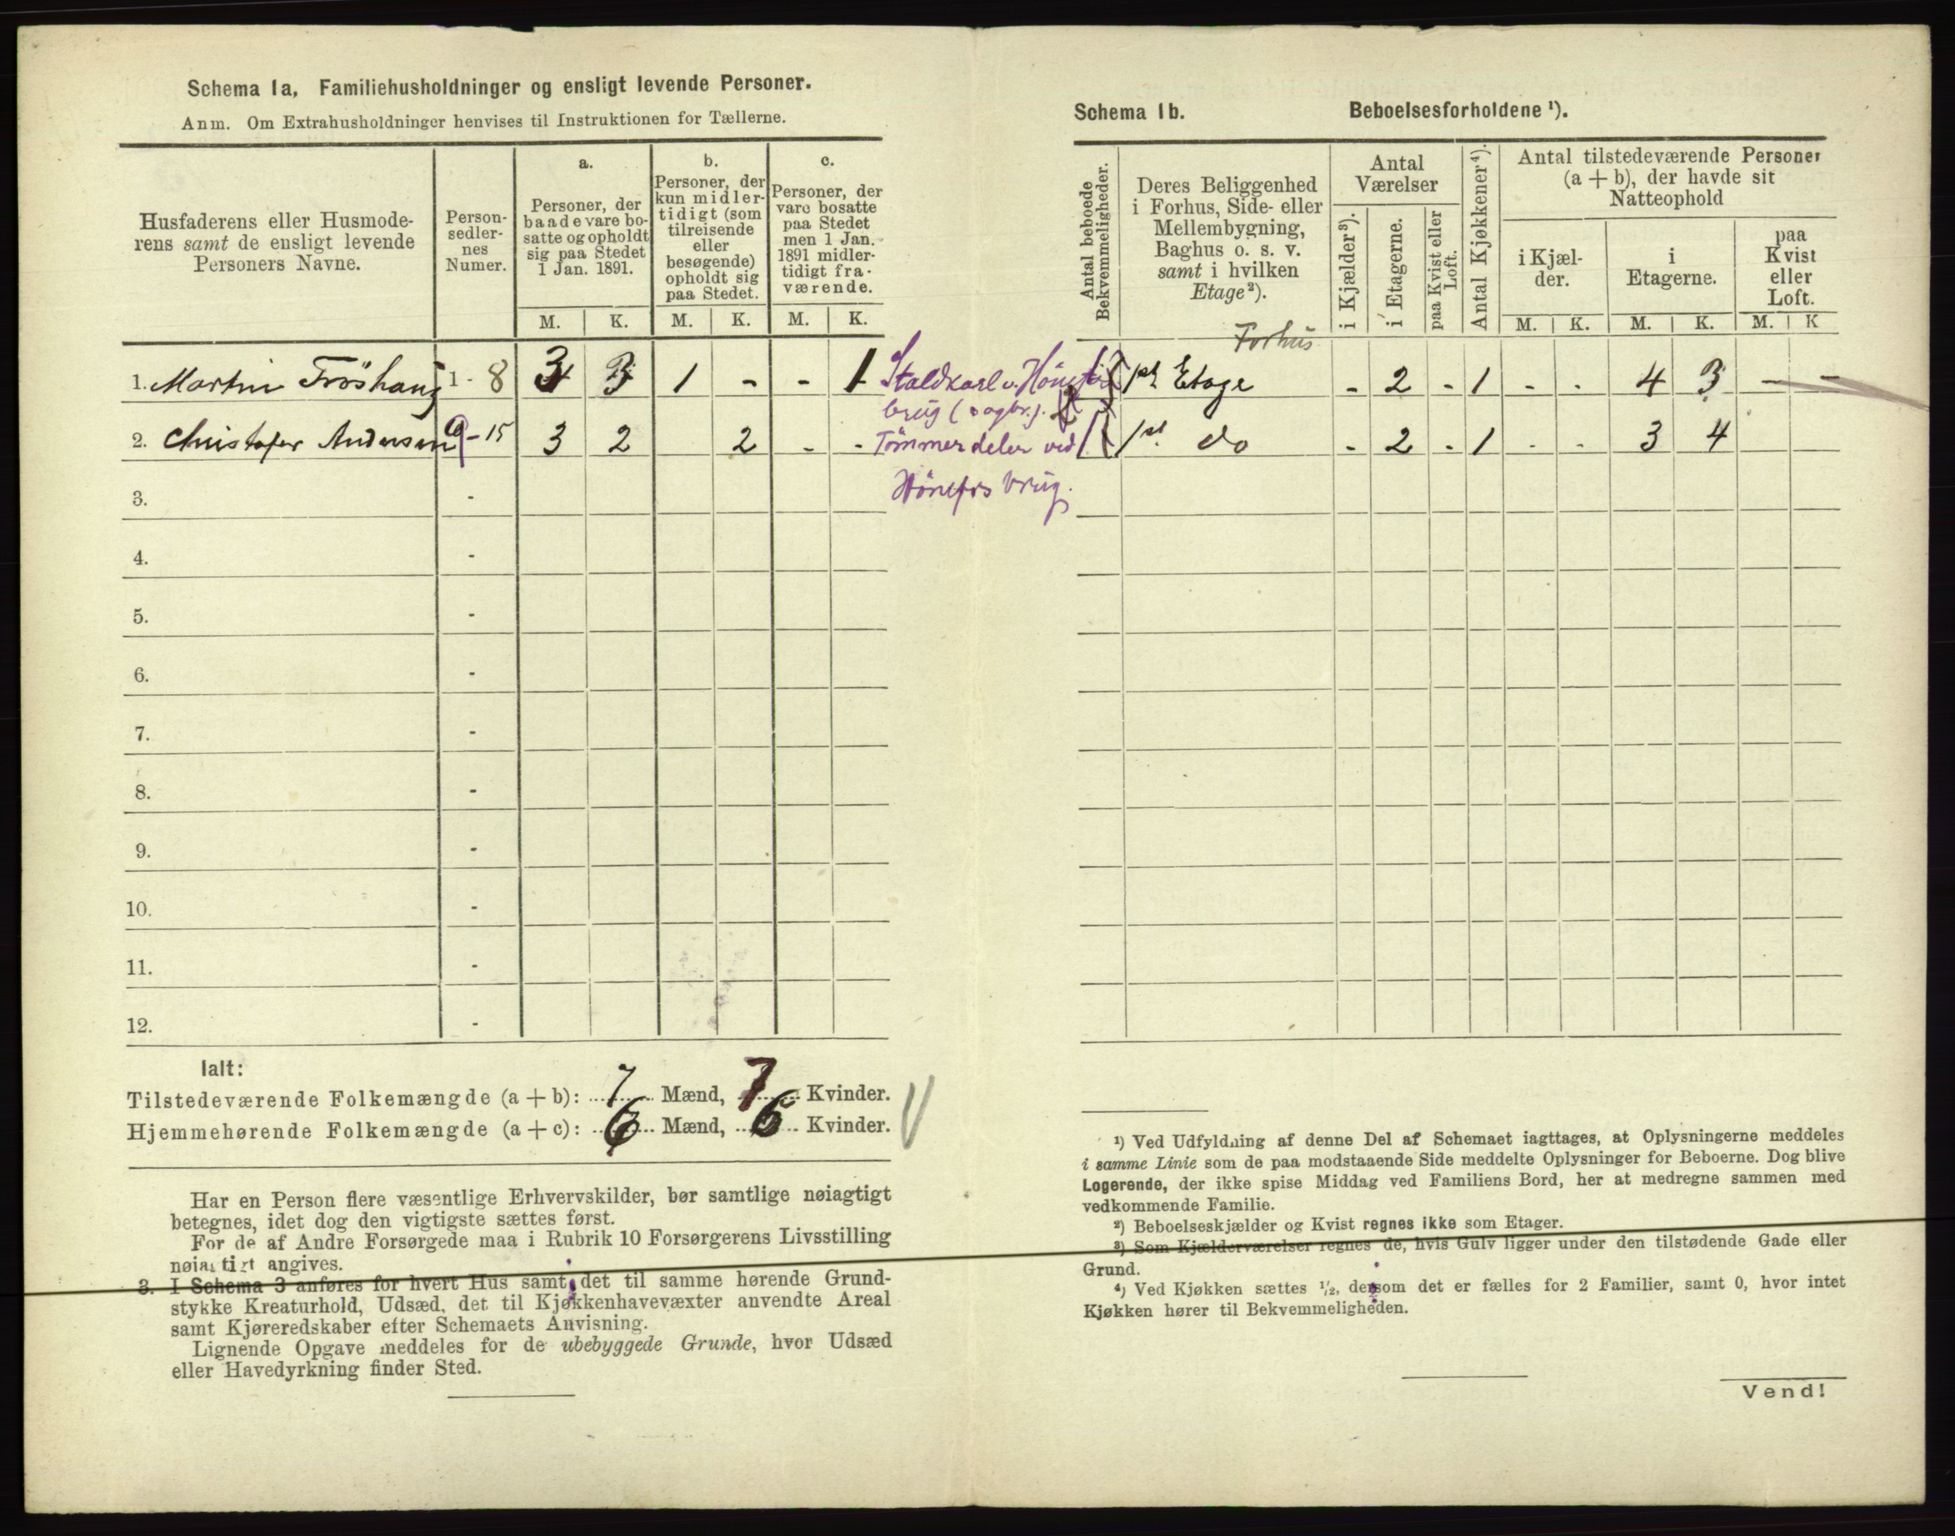 Schema 1a, Familiehusholdninger og ensligt levende Personer.
Anm. Om Extrahusholdninger henvises til Instruktionen for Tællerne.
Husfaderens eller Husmode-
rens samt de ensligt levende
Personers Navne.
Person-
sedler-
nes
Numer.
a.
Personer, der
baade vare bo-
satte og opholdt
sig paa Stedet
1 Jan. 1891.
b.
Personer, der
kun midler-
tidigt (som
tilreisende
eller
besøgende)
opholdt sig
paa Stedet.
c.
Personer, der
vare bosatte
paa Stedet
men 1 Jan.
1891 midler-
tidigt fra-
værende.
M. K. M. K. M. K.
1. Martin Fröshaug 1 - 8 3 3 1 - - 1 Staldkarl v. Hönefos
brug (
2. Christofer Andersen 9 - 15 3 2 2 - - Tömmerdeler ved
Hönefos brug.
3. -
4. -
5. -
6. -
7. -
8. -
9. -
10. -
11. -
12. -
Ialt:
Tilstedeværende Folkemængde (a + b): 7 Mænd, 7 Kvinder.
Hjemmehørende Folkemængde (a + c): 6 Mænd, 6 Kvinder.
Har en Person flere væsentlige Erhvervskilder, bør samtlige nøiagtigt
betegnes, idet dog den vigtigste sættes først.
For de af Andre Forsørgede maa i Rubrik 10 Forsørgerens Livsstilling
nøiagtigt angives.
3. I Schema 3 anføres for hvert Hus samt det til samme hørende Grund-
stykke Kreaturhold, Udsæd, det til Kjøkkenhavevæxter anvendte Areal
samt Kjøreredskaber efter Schemaets Anvisning.
Lignende Opgave meddeles for de ubebyggede Grunde, hvor Udsæd
eller Havedyrkning finder Sted.
Schema 1b. Beboelsesforholdene ¹).
Antal beboede
Bekvemmeligheder.
Deres Beliggenhed
i Forhus, Side- eller
Mellembygning,
Baghus o. s. v.
samt i hvilken
Etage²).
Antal
Værelser
i Kjælder³).
i Etagerne.
paa Kvist eller
Loft.
Antal Kjøkkener⁴).
Antal tilstedeværende Personer
(a + b), der havde sit
Natteophold
i Kjæl-
der.
i
Etagerne.
paa
Kvist
eller
Loft.
M. K. M. K. M. K
Forhus
1ste Etage - 2 - 1 - - 4 3 - -
1 1st do - 2 - 1 - - 3 4
¹) Ved Udfyldning af denne Del af Schemaet iagttages, at Oplysningerne meddeles
i samme Linie som de paa modstaaende Side meddelte Oplysninger for Beboerne. Dog blive
Logerende, der ikke spise Middag ved Familiens Bord, her at medregne sammen med
vedkommende Familie.
²) Beboelseskjælder og Kvist regnes ikke som Etager.
³) Som Kjælderværelser regnes de, hvis Gulv ligger under den tilstødende Gade eller
Grund.
⁴) Ved Kjøkken sættes ¹/₂, dersom det er fælles for 2 Familier, samt 0, hvor intet
Kjøkken hører til Bekvemmeligheden.
Vend!